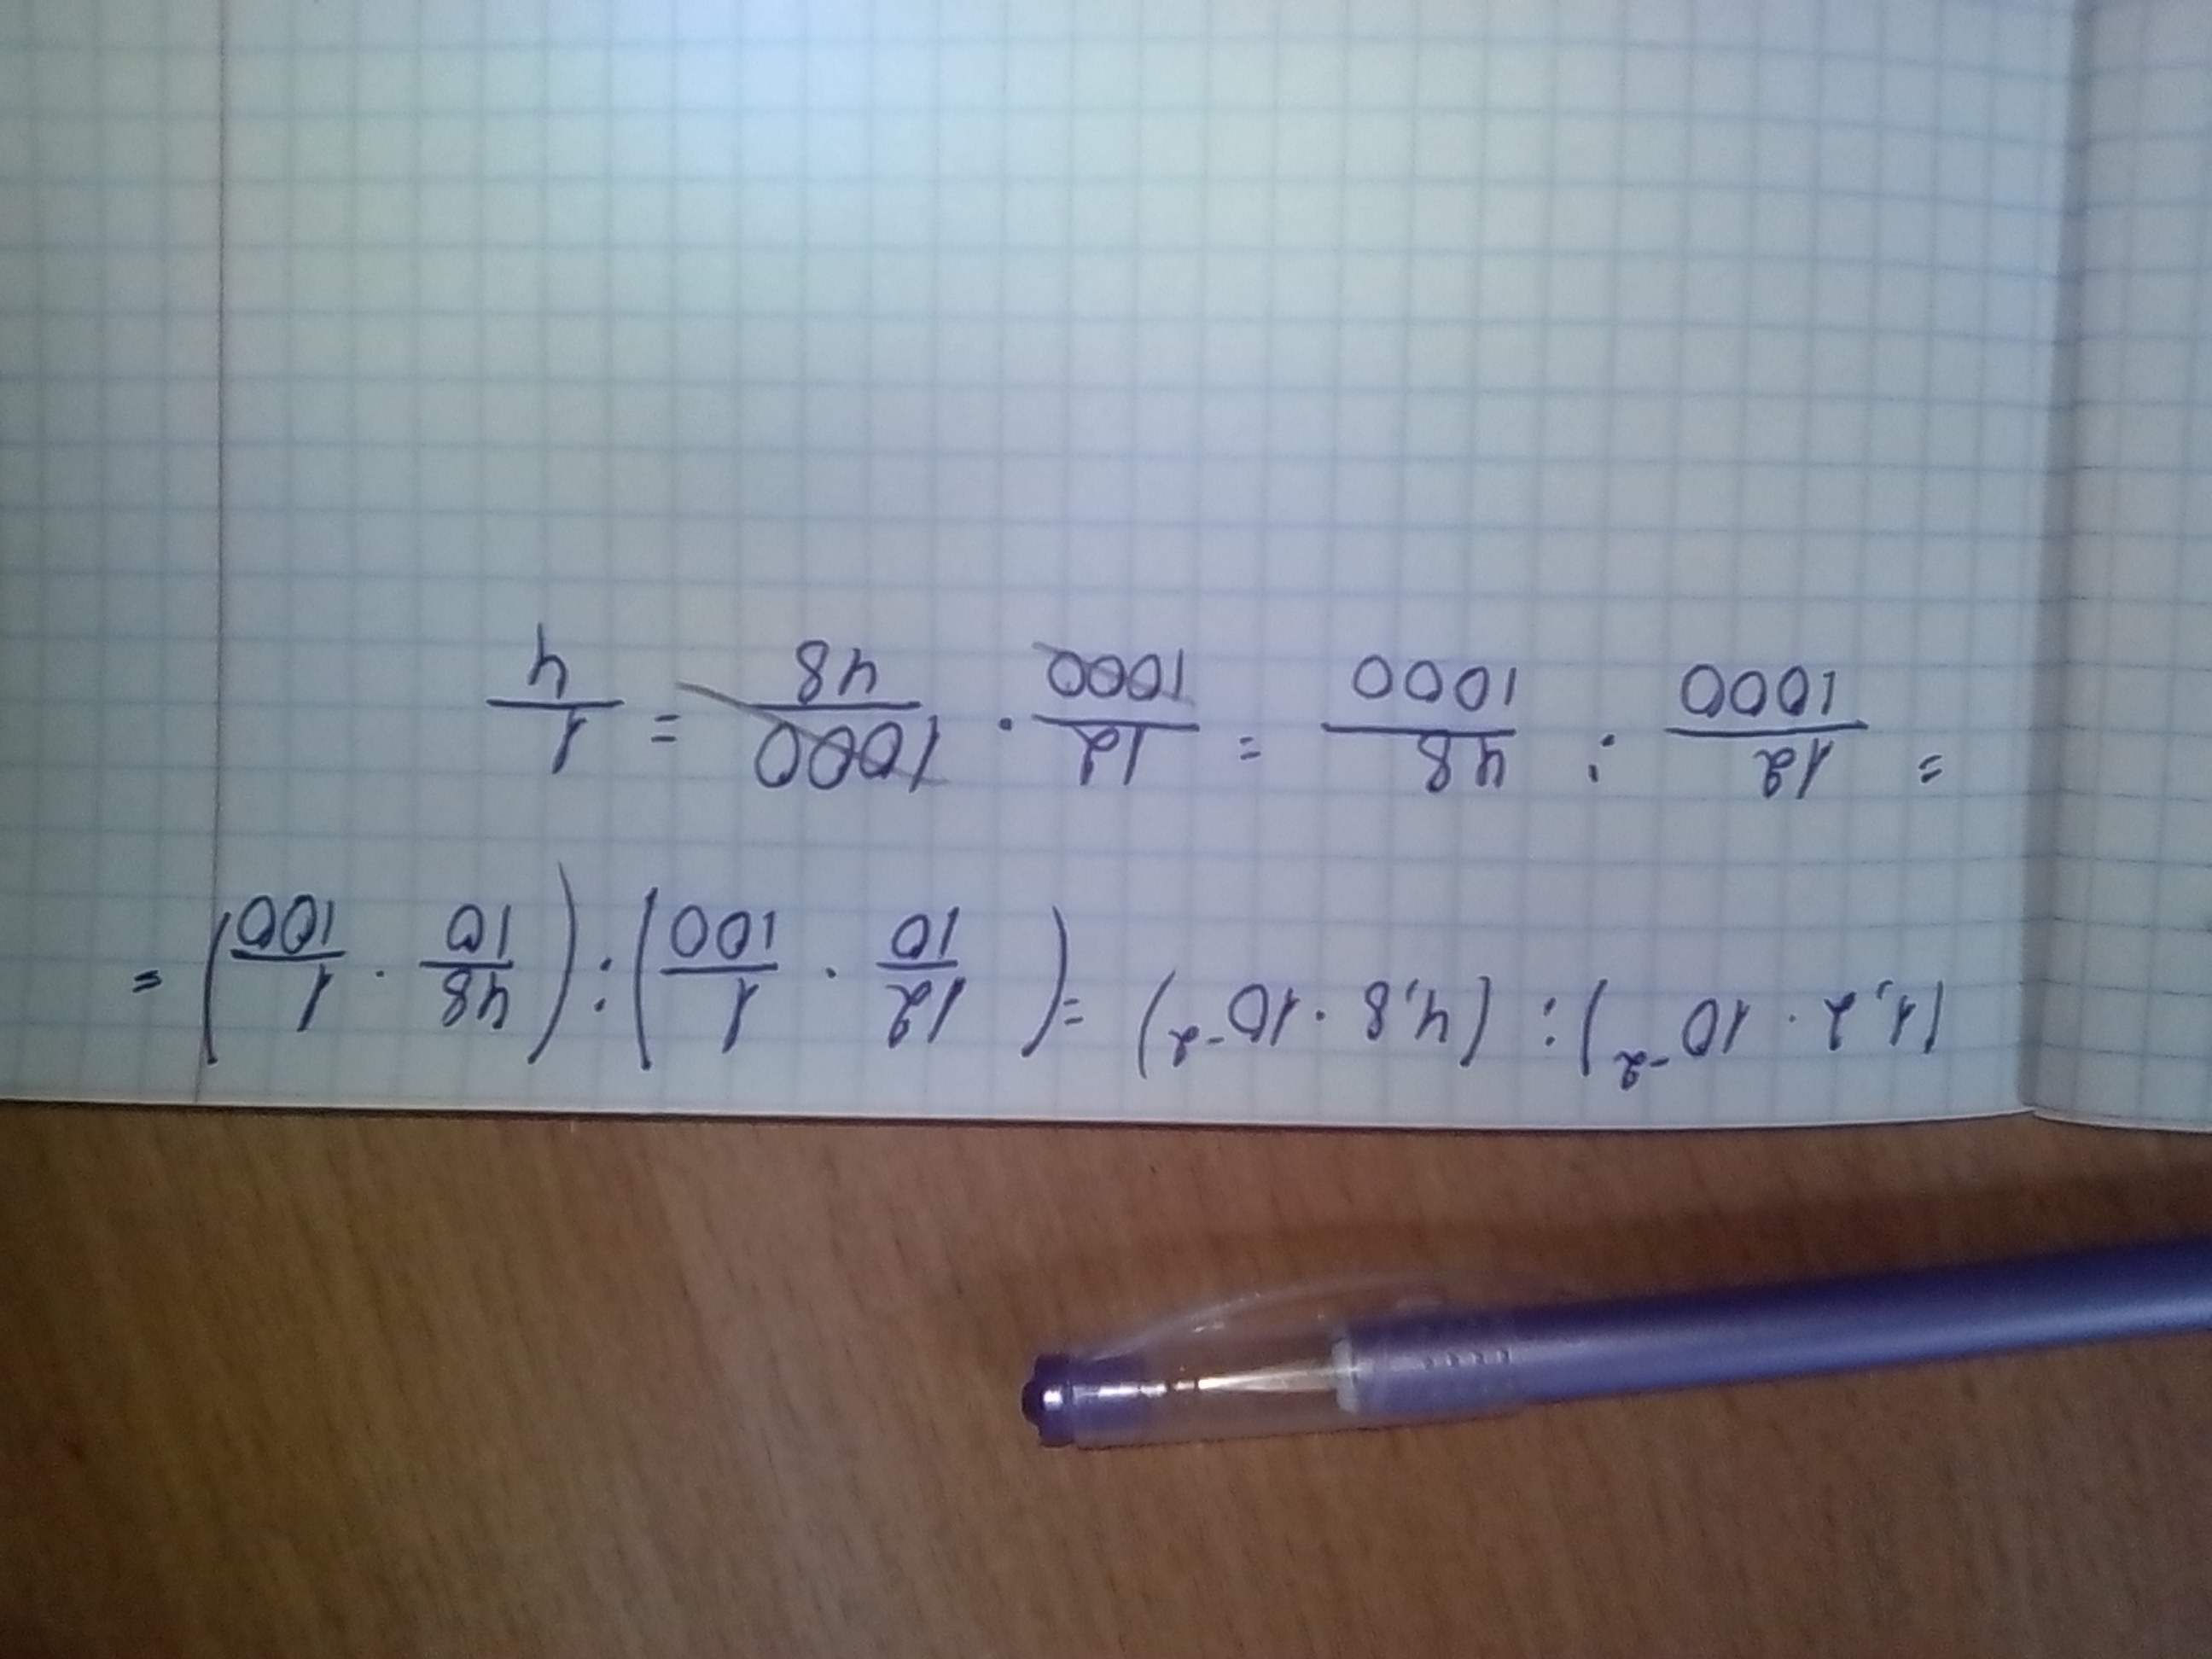 (1,2 · 10⁻²) : (4,8 · 10⁻²) = (12/10 · 1/100) : (48/10 · 1/100) =
= 12/1000 : 48/1000 = 12/1000 · 1000/48 = 1/4